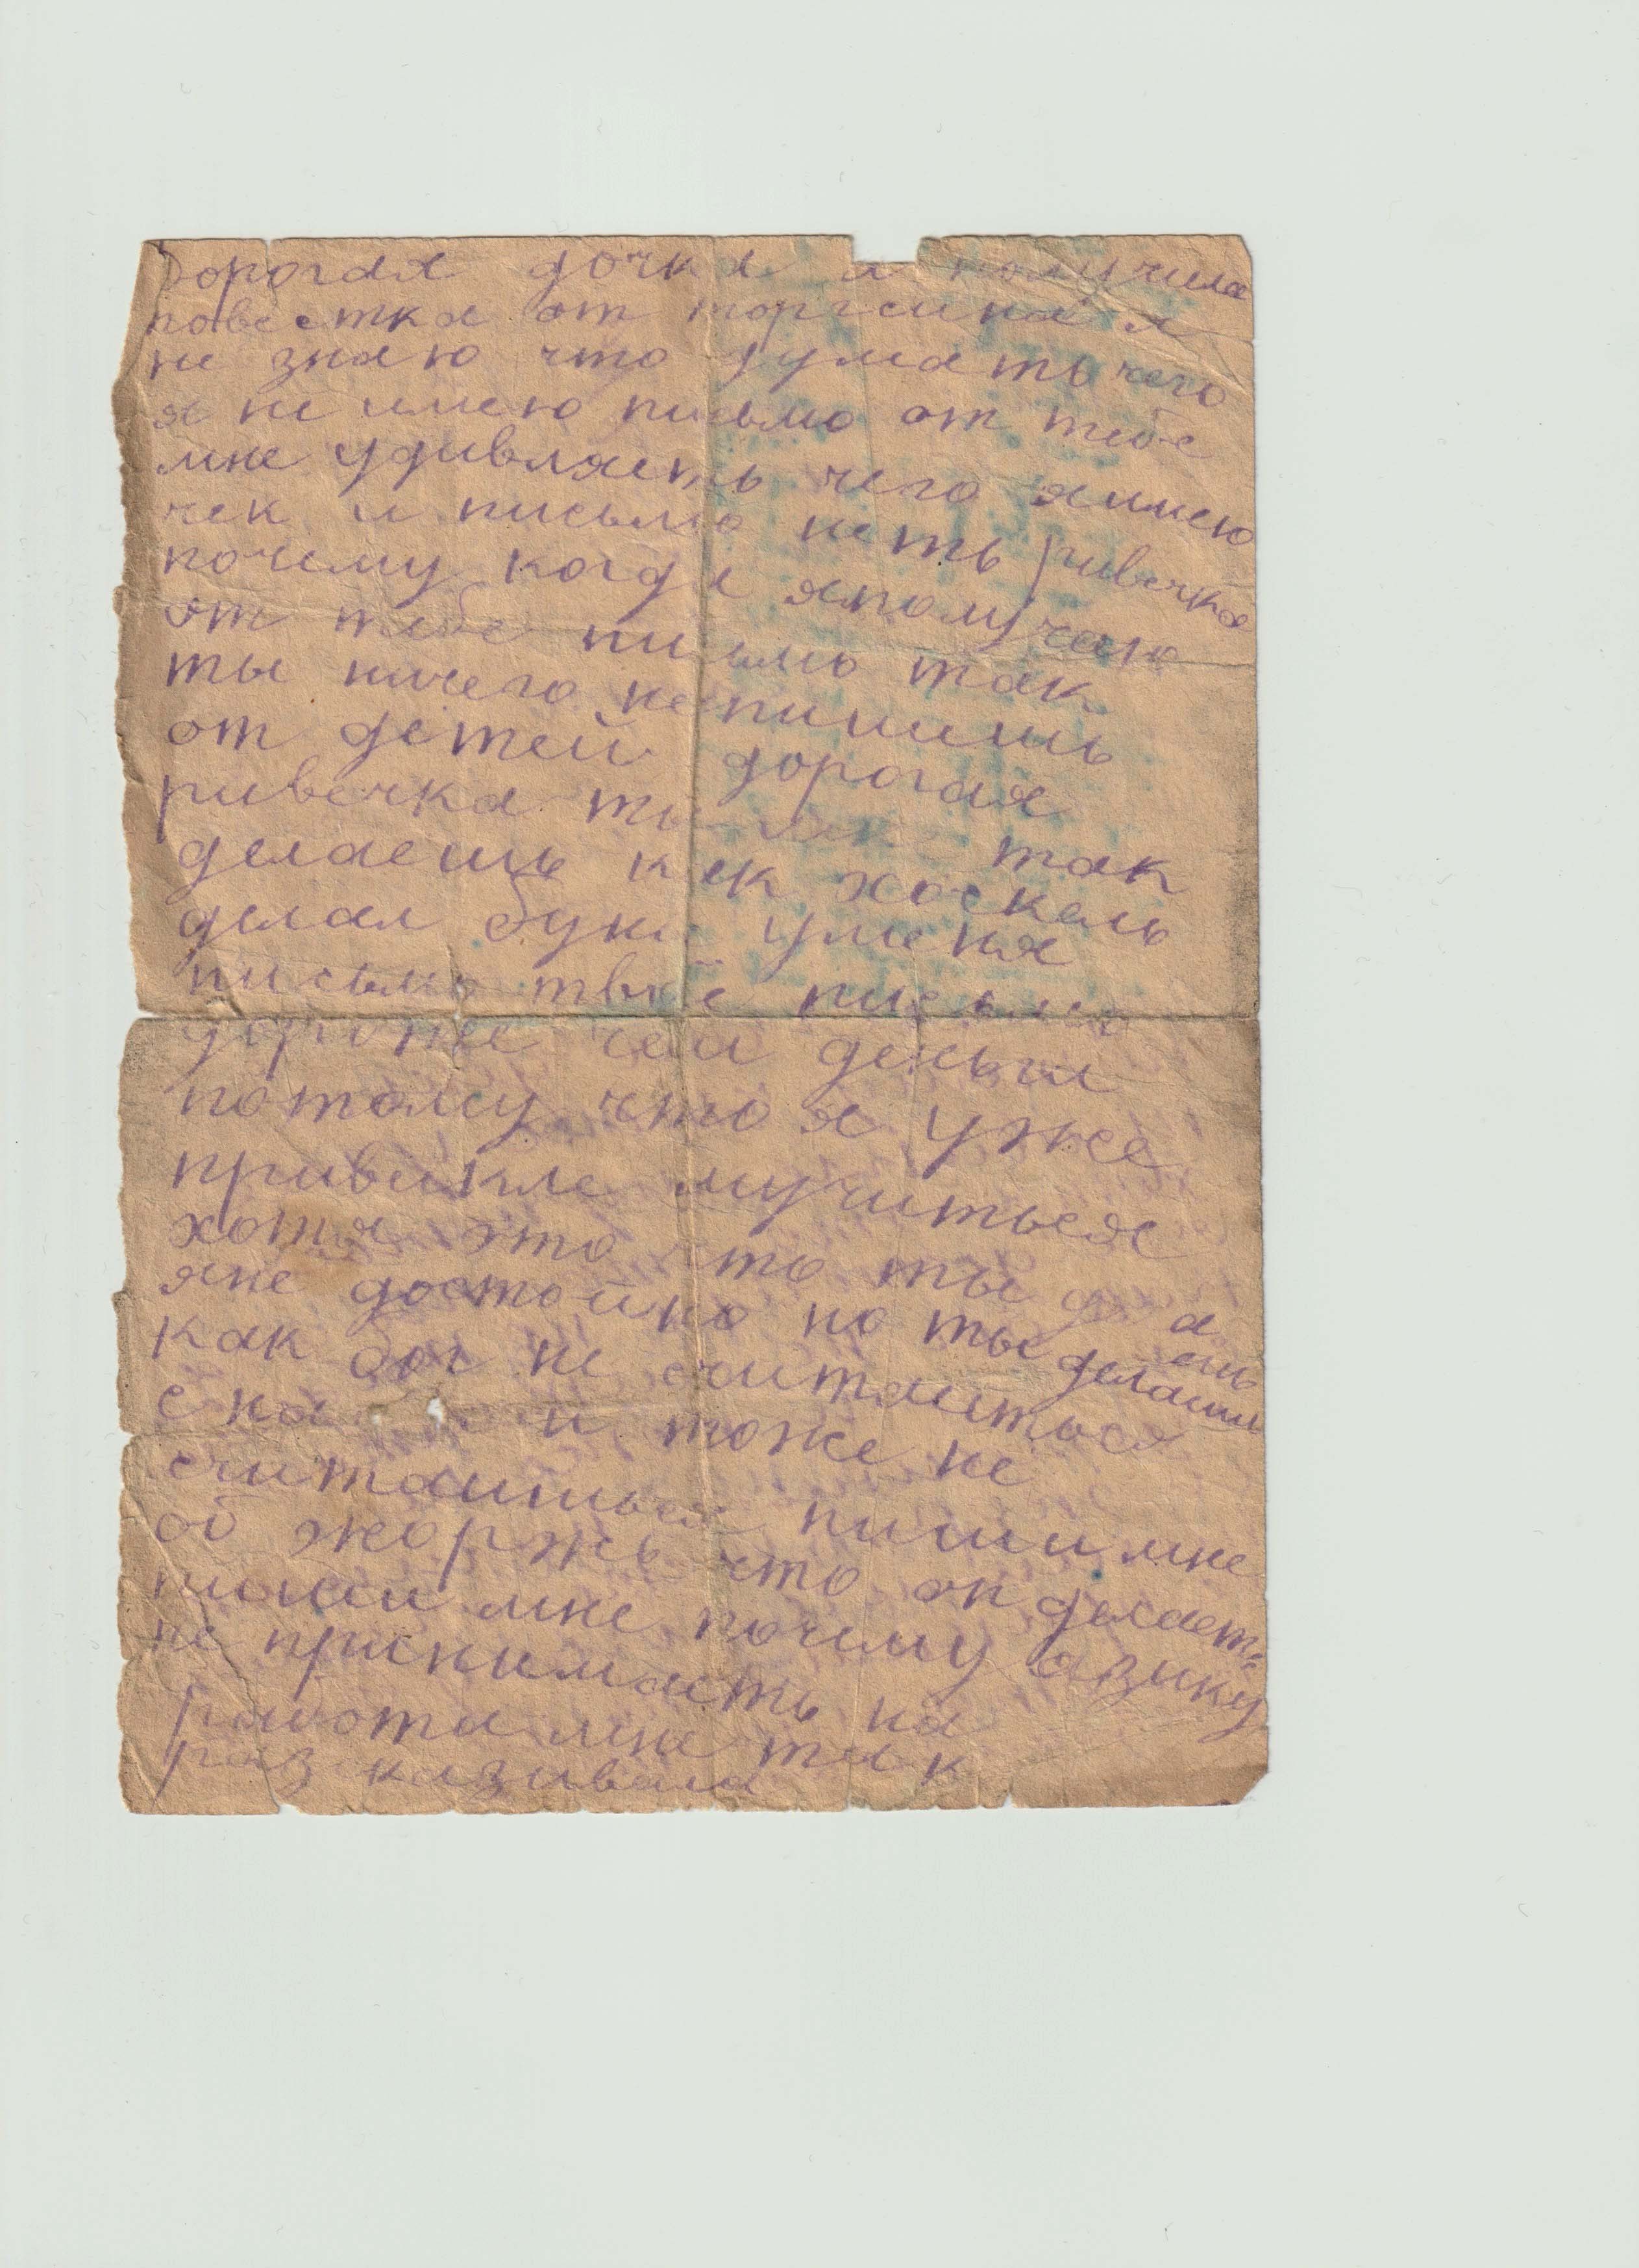 Дорогая дочка я получила
повестка от торгсина я
не знаю что думать чего
я не имею письмо от тебе
мне удивляеть чего я имею
чек и письмо неть ривечка
почему когда яполучаю
от тебе письмо так
ты ничего не пишишь
от детей дорогая
ривечка ты мне так
делаешь как хаскель
делал уменя
письмо твое письмо
дороже чем деньги
потому что я уже
привикла мучиться
хотя это что ты делаешь
яне достойна но ты делаиш
как бог не считаиться
и тоже не
считаишься пиши мне
об жоржь что он делаеть
пиши мне почему азику
не принимаеть на
работа мне так
разказивала